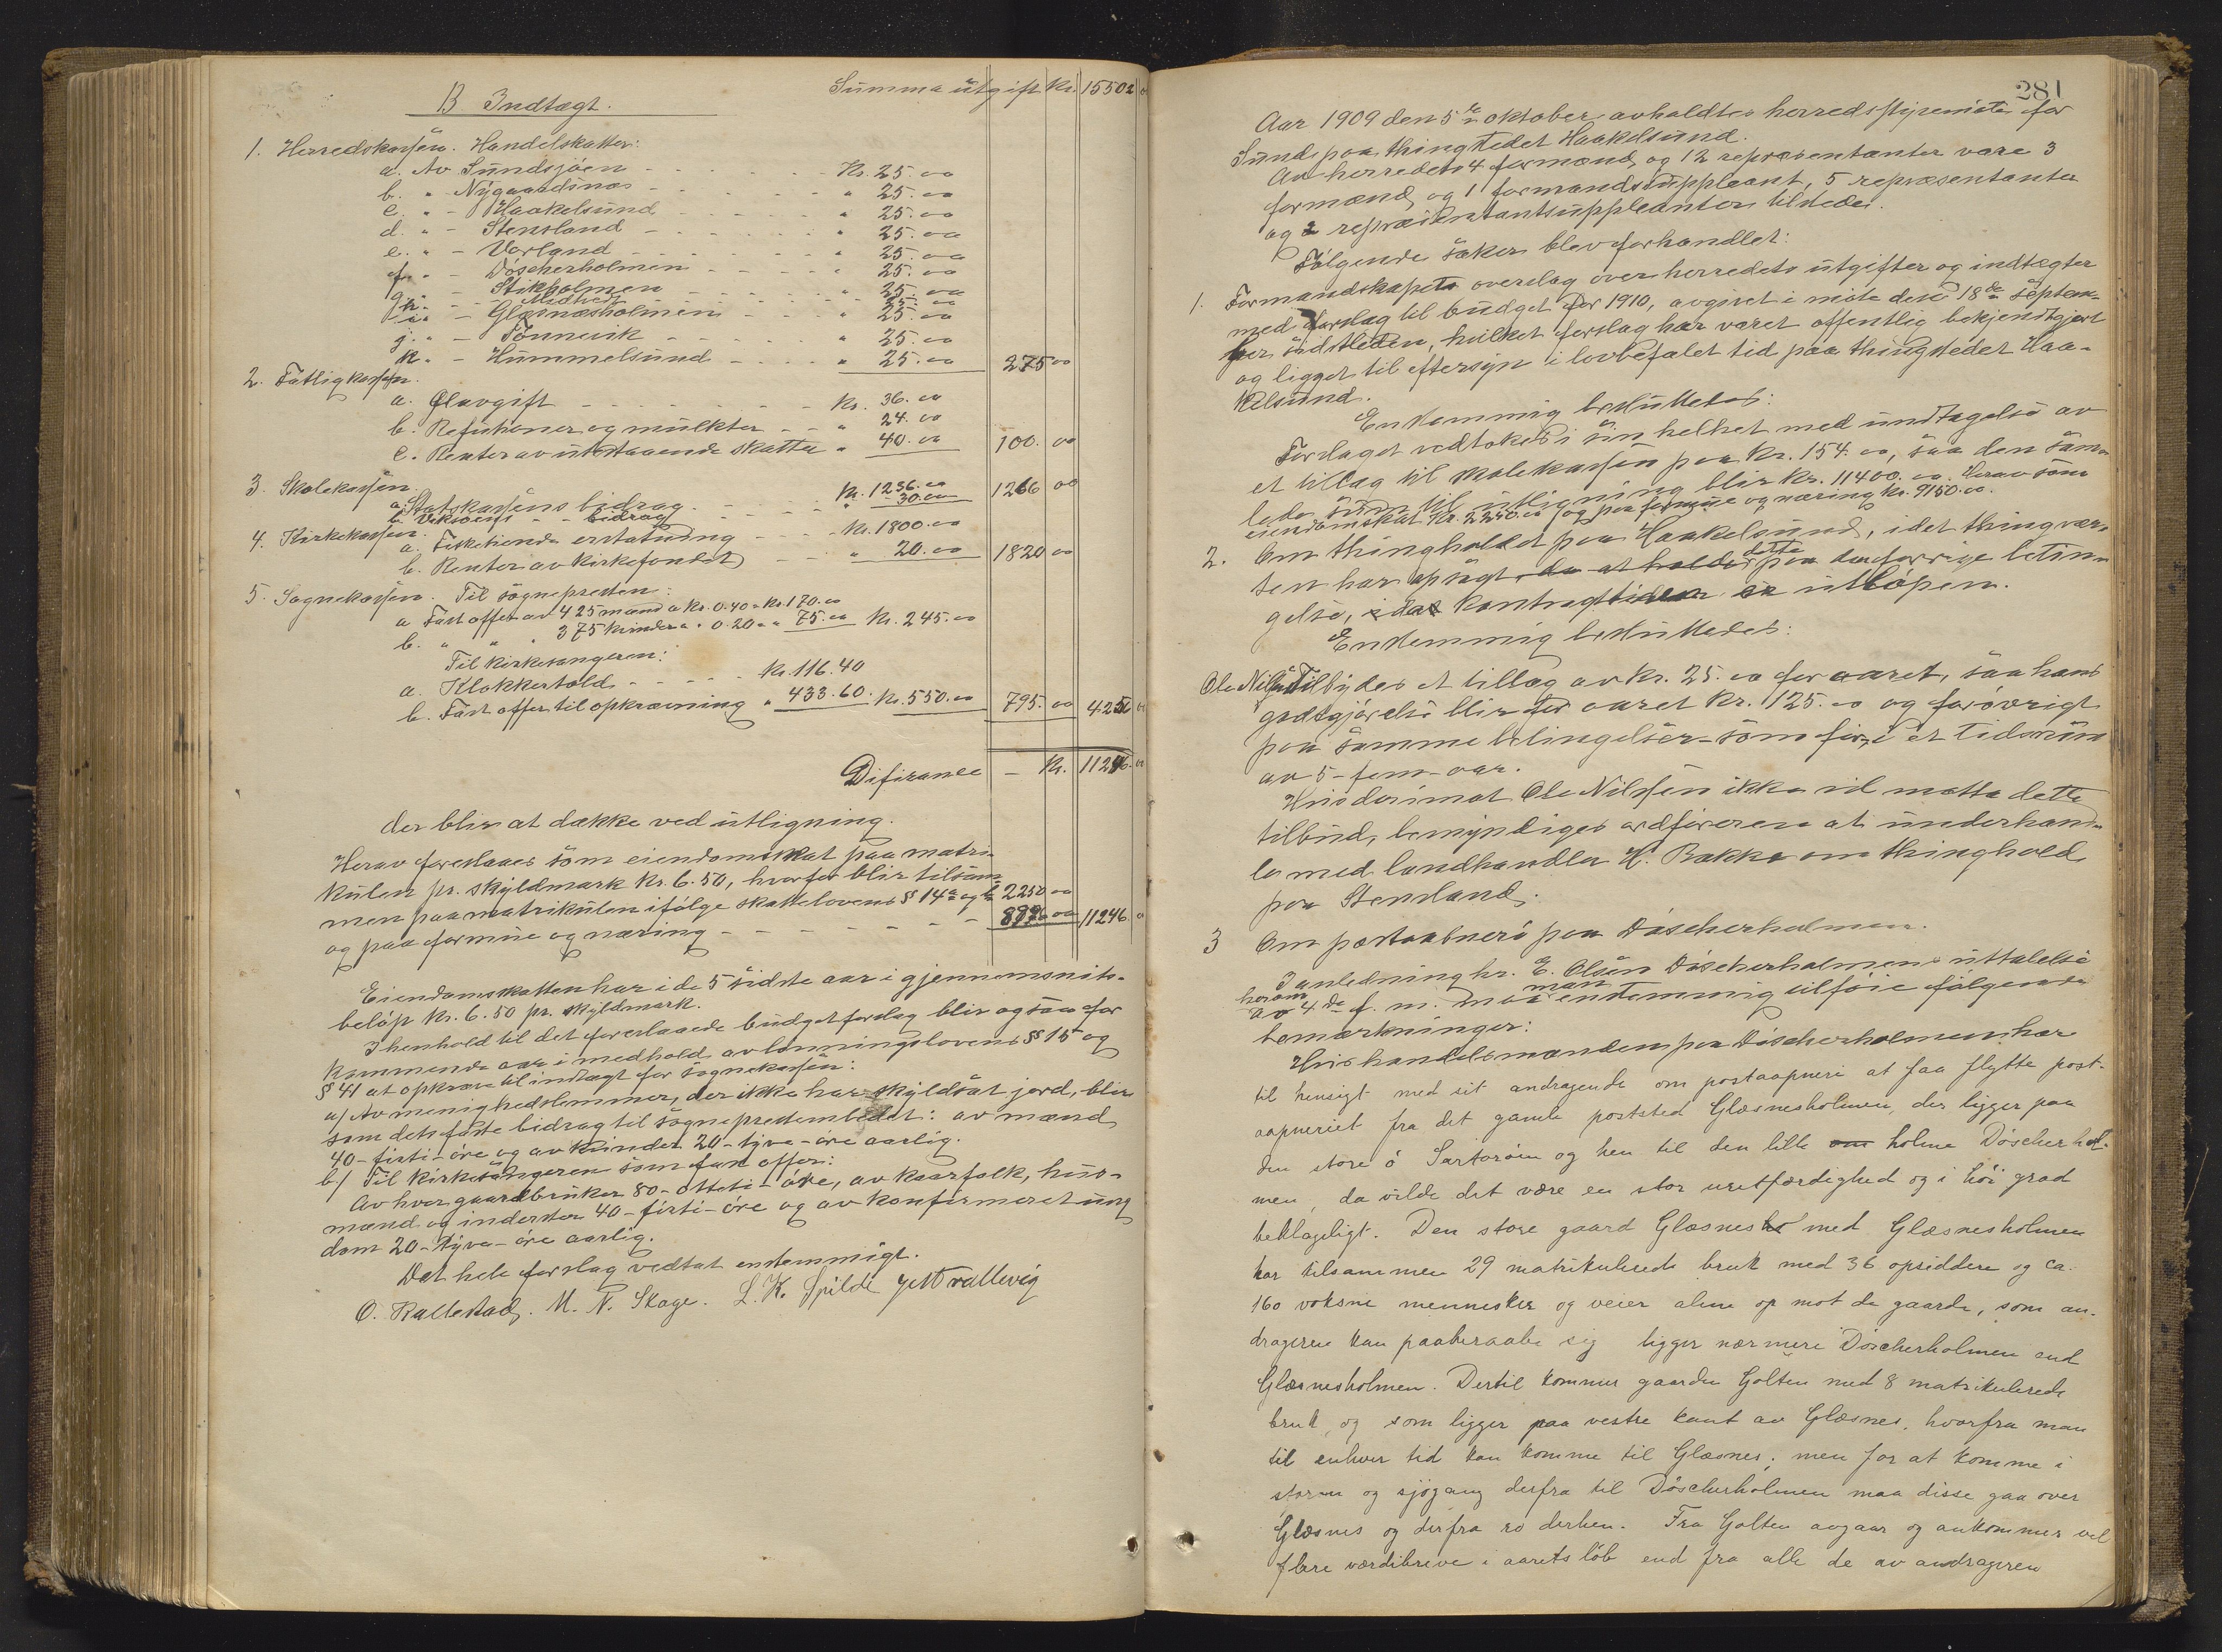 Summa utgift Kr. 15502 00
B Indtægt.
1. Herredskassen. Handelskatter:
a. Av Sundsjøen - - - - - Kr. 25.00
b. " - Nygaardsnæs - - - - " 25.00
c. " - Haakelsund - - - - " 25.00
d. " - Stensland - - - - " 25.00
e. " - Vorland - - - - " 25.00
f. " - Döscherholmen - - - - " 25.00
g. " - Stikholmen - - - - " 25.00
h. - - - - - - 25.00
i. " - Glæsnæsholmen - - - " 25.00
j. " - Tönnevik - - - - " 25.00
k. " - Hummelsund - - - - " 25.00 275 00
2. Fattigkassen.
a. Ølavgift - - - - - - Kr. 36.00
b. Refusioner og mulkter - - " 24.00
c. Renter av utestaaende skatter " 40.00 100.00
3. Skolekassen.
a. Statskassens bidrag - - - Kr. 1236.00
b. Veksøens - - bidrag - - - " 30.00 1266 00
4. Kirkekassen.
a. Fisketiende erstatning - - - Kr. 1800.00
b. Renter av kirkefondet - - " 20.00 1820 00
5. Sognekassen. Til sognepresten:
a. Fast offer av 425 mænd a Kr. 0.40 = Kr. 170.00
b. " " " 375 kvinder a " 0.20 = " 75.00 Kr. 245.00
Til kirkesangeren:
a. Klokkertold - - - - - Kr. 116.40
b. Fast offer til opkrævning " 433.60. Kr. 550.00 795.00 4256 00
Difirance - Kr. 11246.00
der blir at dække ved utligning.
Herav foreslaaes som eiendomsskat paa matri-
kulen pr. skyldmark Kr. 6.50, hvorfor blir tilsam-
men paa matrikulen ifölge skattelovens § 14 a og b 2250 00
og paa formue og næring - - - - - - - 8996 00 11246.00
Eiendomsskatten har i de 5 sidste aar i gjennemsnits-
beløp Kr. 6.50 pr. skyldmark.
I henhold til det foreslaaede budgetforslag blir ogsaa for
kommende aar i medhold av lønningslovens §§ 15 og
§ 41 at opkræve til indtægt for sognekassen:
a/ Av menighedslemmer, der ikke har skyldsat jord, blir
som dets faste bidrag til sogneprestembedet: av mænd
40 - firti - öre og av kvinder 20 - tyve - öre aarlig.
b/ Til kirkesangeren som fast offer:
Av hver gaardbruker 80 - otteti - öre, av kaarfolk, hus-
mænd og inderster 40 - firti - öre og av konfirmeret ung
dom 20 - tyve - öre aarlig.
Det hele forslag vedtat enstemmigt.
O. Ballestad. M. N. Skoge. L. K. Spilde
281
Aar 1909 den 5te oktober avholdtes herredsstyremöte for
Sund paa thingstedet Haakelsund.
Av herredets 4 formænd og 12 repræsentanter vare 3
formænd og 1 formandssuppleant, 5 repræsentanter
og 2 repræsentantsuppleanter tilstede.
Fölgende saker blev forhandlet:
1. Formandskapets overslag over herredets utgifter og indtægter
med forslag til budget for 1910, avgivet i möte den 18de septem-
ber sidstleden, hvilket forslag har været offentlig bekjendtgjort
og ligget til eftersyn i lovbefalet tid paa thingstedet Haa-
kelsund.
Enstemmig besluttedes:
Forslaget vedtokes i sin helhet med undtagelse av
et tillæg til skolekassen paa Kr. 154.00, saa den sam-
lede sum til utligning blir Kr. 11400.00. Herav som
eiendomsskat Kr. 2250.00 og paa formue og næring Kr. 9150.00.
2. Om thingholdet paa Haakelsund, idet thingvær-
ten har opsagt at holde dette paa den forrige betin-
gelse, da kontrakttiden er utløpen.
Enstemmig besluttedes:
Ole Nilsen tilbydes et tillæg av Kr. 25.00 for aaret, saa hans
godtgjörelse blir for aaret Kr. 125.00 og forövrigt
paa samme betingelser som för, i et tidsrum
av 5 - fem - aar.
Hvis derimot Ole Nilsen ikke vil motta dette
tilbud, bemyndiges ordføreren at underhand-
le med landhandler H. Bakke om thinghold
paa Stensland.
3 Om postaabneri paa Döscherholmen.
I anledning hr. E. Olsen Döscherholmens uttalelse
herom av 4de f. m. maa man enstemmig tilföie fölgende
bemærkninger:
Hvis handelsmanden paa Döscherholmen har
til hensigt med sit andragende om postaapneri at faa flytte post-
aapneriet fra det gamle poststed Glæsnesholmen, der ligger paa
den store ö Sartoröen og hen til den lille om holme Döscherhol-
men, da vilde det være en stor uretfærdighed og i höi grad
beklageligt. Den store gaard Glæsnes ho med Glæsnesholmen
har tilsammen 29 matrikulerede bruk med 36 opsiddere og ca.
160 voksne mennesker og veier alene op mot de gaarde, som an-
drageren kan paaberaabe sig ligger nærmere Döscherholmen end
Glæsnesholmen. Dertil kommer gaarden Golten med 8 matrikulerede
bruk, og som ligger paa vestre kant av Glæsnes, hvorfra man
til enhver tid kan komme til Glæsnes; men for at komme i
storm og sjögang derfra til Döscherholmen maa disse gaa over
Glæsnes og derfra ro derhen. Fra Golten avgaar og ankommer vel
flere værdibreve i aarets löb end fra alle de av andrageren